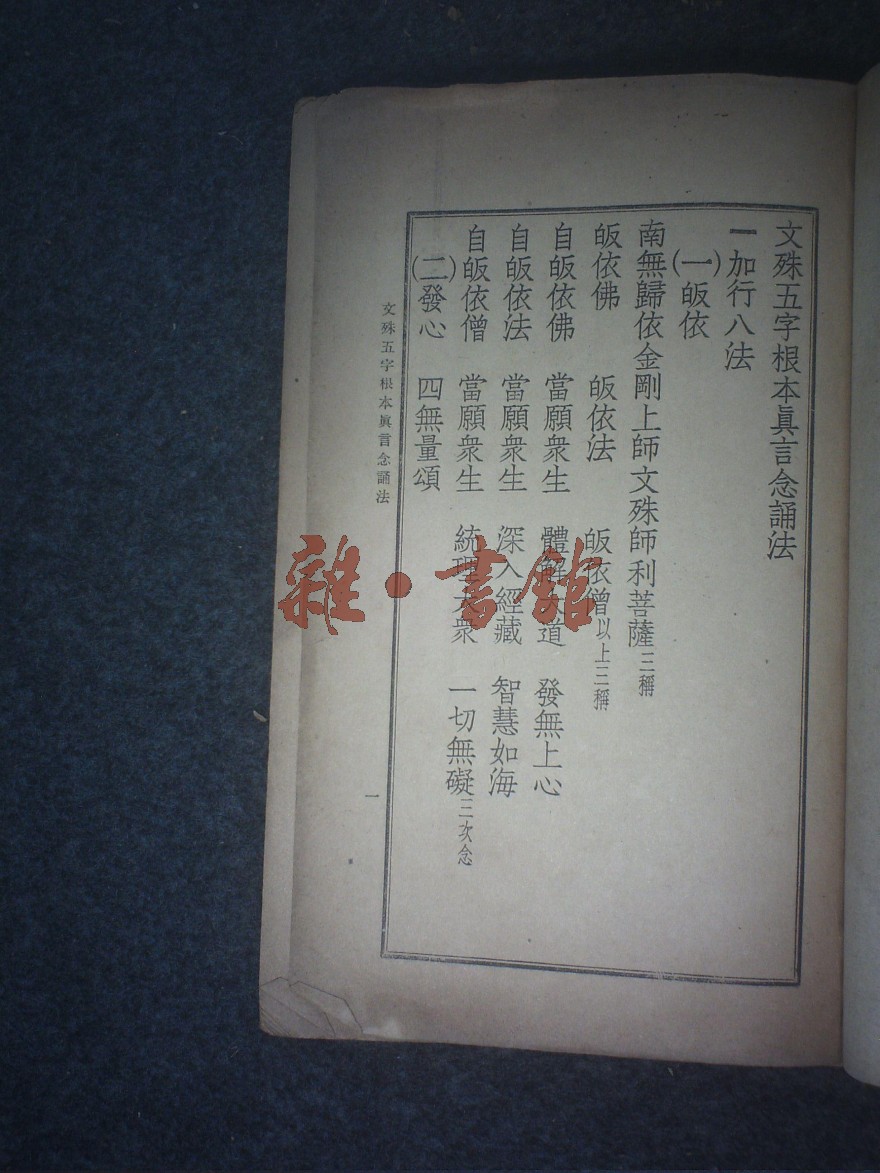 文殊五字根本眞言念誦法
一加行八法
(一)皈依
南無歸依金剛上師文殊師利菩薩三稱
皈依佛 皈依法 皈依僧以上三稱
自皈依佛 當願衆生 體解大道 發無上心
自皈依法 當願衆生 深入經藏 智慧如海
自皈依僧 當願衆生 統理大衆 一切無礙三次念
(二)發心 四無量頌
文殊五字根本眞言念誦法
一
雜·書館